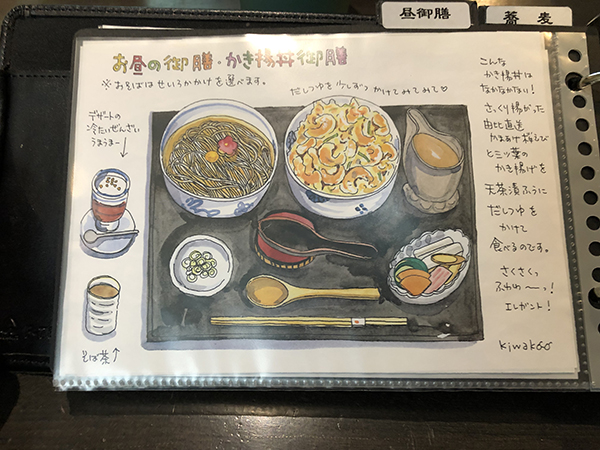 昼御膳
蕎麦
お昼の御膳・かき揚丼御膳
※おそばはせいろかかけを選べます。
だしつゆを少しずつかけてみてみて♡
デザートの
冷たいぜんざい
うまうまー
そば茶↑
こんな
かき揚丼は
なかなかない!
さっくり揚がった
由比直送
かまあげ桜えび
と三ッ葉の
かき揚げを
天茶漬ふうに
だしつゆを
かけて
食べるのです。
さくさくっ
ふわわ〜っ!
エレガント!
kiwakoo